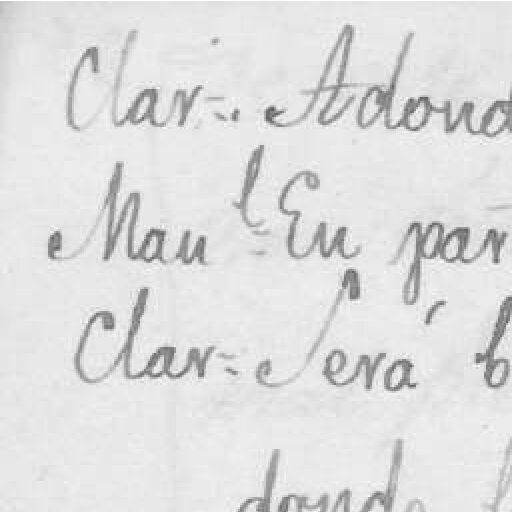 Clar=. Adond
Man^l= En par
Clar= Será b
donde